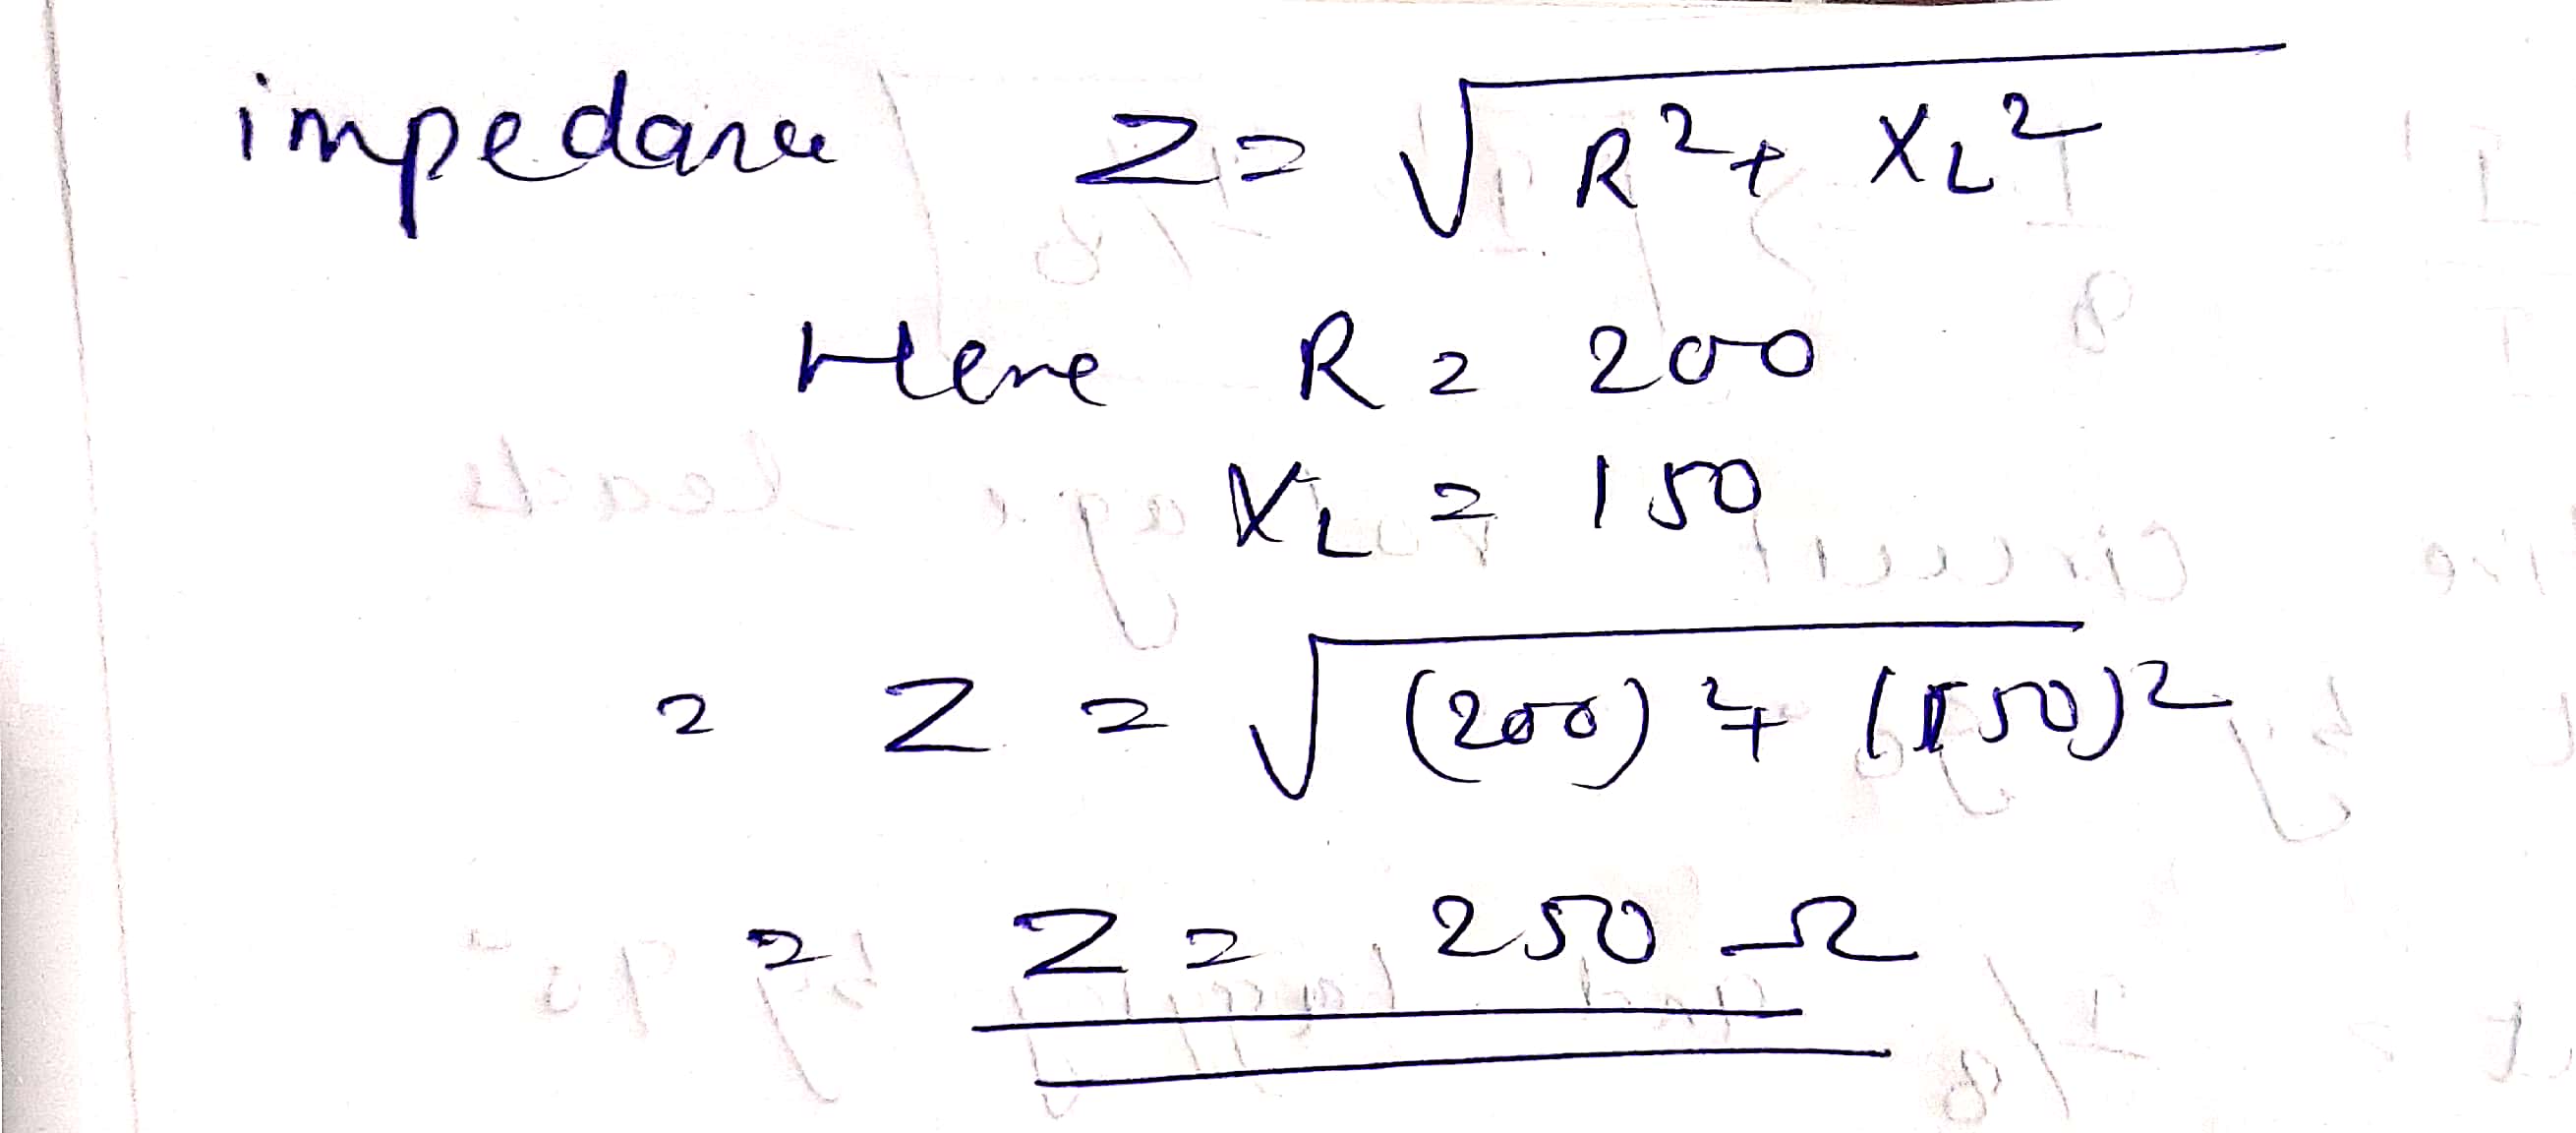 impedance Z = √(R² + X_L²)
Here R = 200
X_L = 150
= Z = √((200)² + (150)²)
= Z = 250 Ω